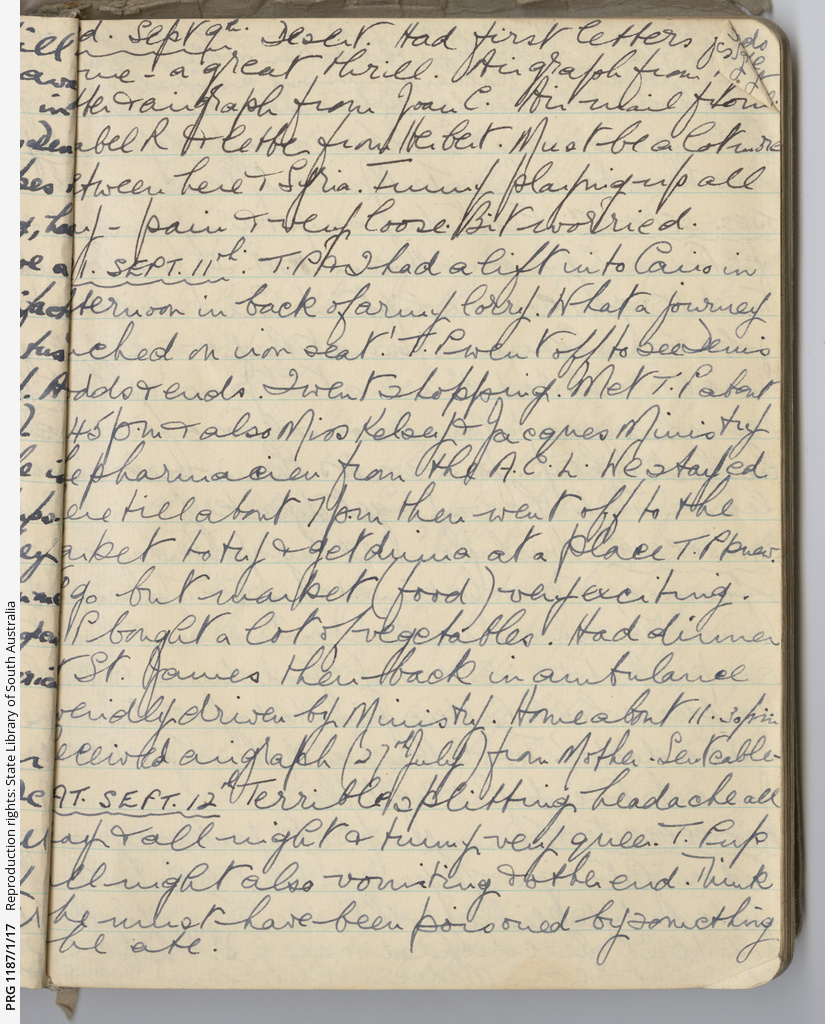 d. Sept 9th. Desert. Had first letters
me - a great thrill. Airgraph from
tter & airgraph from Joan C. Air mail from
abel R & letter from Herbert. Must be a lot more
tween here & Syria. Tummy playing up all
ay - pain & very loose. Bit worried.
I. SEPT. 11th. T.P & I had a lift into Cairo in
fternoon in back of army lorry. What a journey
ched on iron seat! T.P went off to see Denis
odds & ends. I went shopping. Met T.P about
45 pm & also Miss Kelsey & Jacques Ministry
e pharmacien from the A.C.L. We stayed
ere till about 7 pm then went off to the
arket to try & get dinna at a place T.P knew.
go but market (food) very exciting.
P bought a lot of vegetables. Had dinner
St. James then back in ambulance
driven by Ministry. Home about 11.30 pm
eceived airgraph (27th July) from Mother. Sent cable
AT. SEPT. 12th Terrible splitting headache all
ay & all night & tummy very queer. T.P up
ll night also vomiting & other end. Think
he must have been poisoned by something
he ate.
PRG 1187/1/17 Reproduction rights: State Library of South Australia